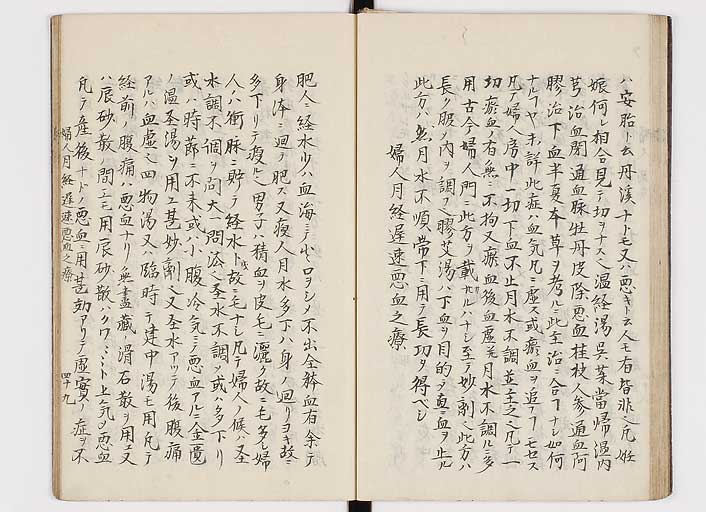 ハ安胎ト云丹溪ナトモ又ハ悪キト云人モ有皆非之凡妊
娠何レ相合見テ切ヲナス之温経湯呉茱當帰温内
芎治血閉通血脉牡丹皮除悪血桂枝人参通血阿
膠治下血半夏本草ヲ考ルニ此至治ニ合フナシ如何
ナル フヤ未詳此症ハ血気凡ニ虚ス或瘀血ヲ追フフモセス
凡テ婦人房中一切下血不止月水不調並主之凡テ一
切瘀血ノ有無ニ不拘又瘀血後血虚 月水不調ルニ多
用古今婦人門ニ此方ヲ載サルハナシ至テ妙剤之此方ハ
長ク服メ内ヲ調フ之膠艾湯ハ下血ヲ目的ヲ 血ヲ止ル
此方ハ 月水不順帯下ニ用テ長功ヲ得ベシ
婦人月経遅速悪血之療
肥人ハ経水少ハ血海ニテ 不出全躰血有余テ
身体ニ廻テ肥ス又瘦人月水多下ハ身ノ廻リヨキ故ニ
多下リテ瘦ル之男子ハ積血ヲ皮毛ニ灑ク故ニ毛多シ婦
人ハ衝脉ニ貯テ経水ト成故ニ毛ナシ凡テ婦人ノ候ハ圣
水調不調ヲ問大一問 之圣水不調ヲ或ハ多下リ
或ハ時節ニ不来或ハ小腹冷気ニテ悪血アルニ金匱
ノ温圣湯ヲ用エ甚妙剤之又圣水アツテノ後腹痛
アルハ血虚之四物湯又ハ臨時テ建中湯モ用凡テ
経前ノ腹痛ハ悪血ナリ無盡蔵ノ滑石散ヲ用エ又
ハ辰砂散ノ間ニモ用辰砂散ハクワミント上気メ悪血
凡テ産後ナトノ悪血ニ用甚効アリテ虚實ノ症ヲ不
婦人月経遅速悪血之療
四十九